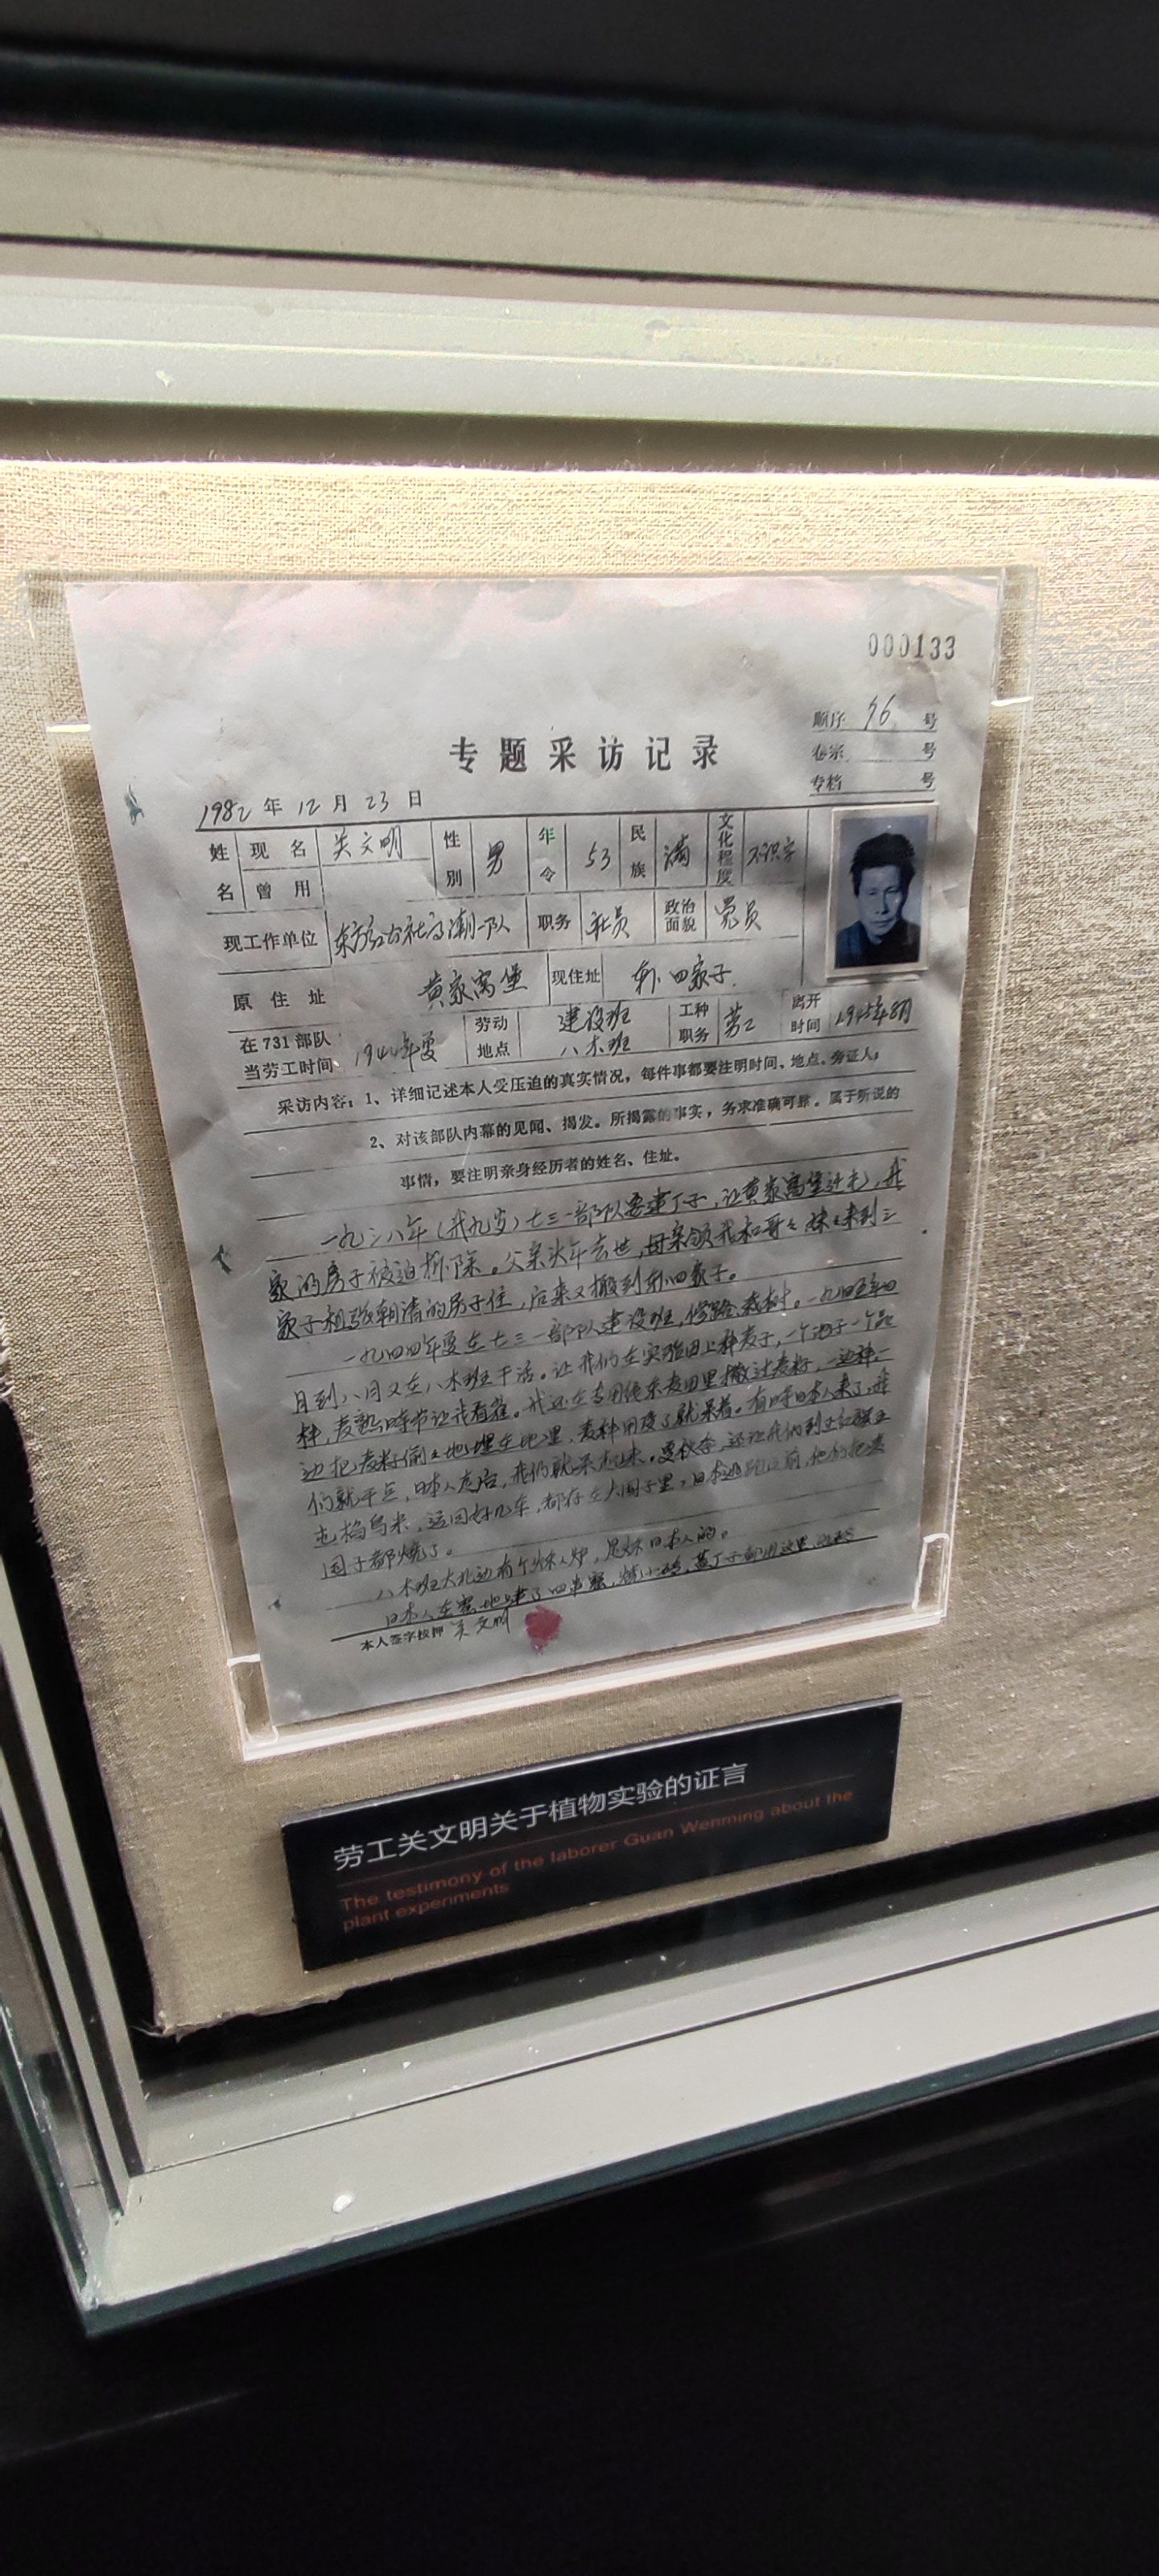 000133
顺序 96 号
卷宗 号
专档 号
专题采访记录
1982年12月23日
姓名 现名 关文明 性别 男 年令 53 民族 满 文化程度 不识字
曾用
现工作单位 东方红公社高潮一队 职务 社员 政治面貌 党员
原住址 黄家窝堡 现住址 东四家子
在731部队当劳工时间 1944年夏 劳动地点 建设班 八木班 工种职务 劳工 离开时间 1945年8月
采访内容：1、详细记述本人受压迫的真实情况，每件事都要注明时间、地点、旁证人；
2、对该部队内幕的见闻、揭发。所揭露的事实，务求准确可靠。属于听说的
事情，要注明亲身经历者的姓名、住址。
一九三八年（我九岁）七三一部队要建丁子，让黄家窝堡迁走，我
家的房子被迫拆除。父亲头年去世，母亲领我和哥哥妹妹来到三
家子租张朝清的房子住，后来又搬到东四家子。
一九四四年夏在七三一部队建设班，修路、栽树。一九四五年四
月到八月又在八木班干活。让我们在实验田上种麦子，一个池子一个品
种，麦熟时节让我看雀。我还在专用线东麦田里撒过麦籽，一边种一
边把麦籽偷偷地埋在地里，麦种用废了就呆着。有时日本人来了，我
们就干点，日本人走后，我们就呆起来。夏秋季，还让我们到
去掐乌米，运回好几车，都存在大囤子里，日本逃跑之前，他们把
囤子都烧了。
八木班大北边有个炼人炉，是炼日本人的。
日本人在
本人签字按押 关文明
劳工关文明关于植物实验的证言
The testimony of the laborer Guan Wenming about the
plant experiments